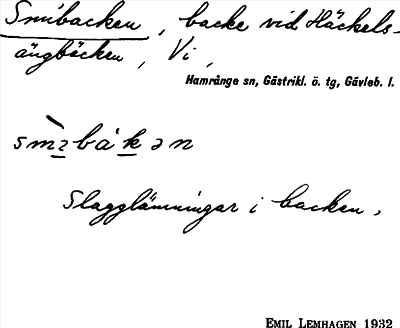 Smibacken, backe vid Häckels-
ängbäcken, Vi,
Hamrånge sn, Gästrikl. ö. tg, Gävleb. l.
Slagglämningar i backen.
EMIL LEMHAGEN 1932